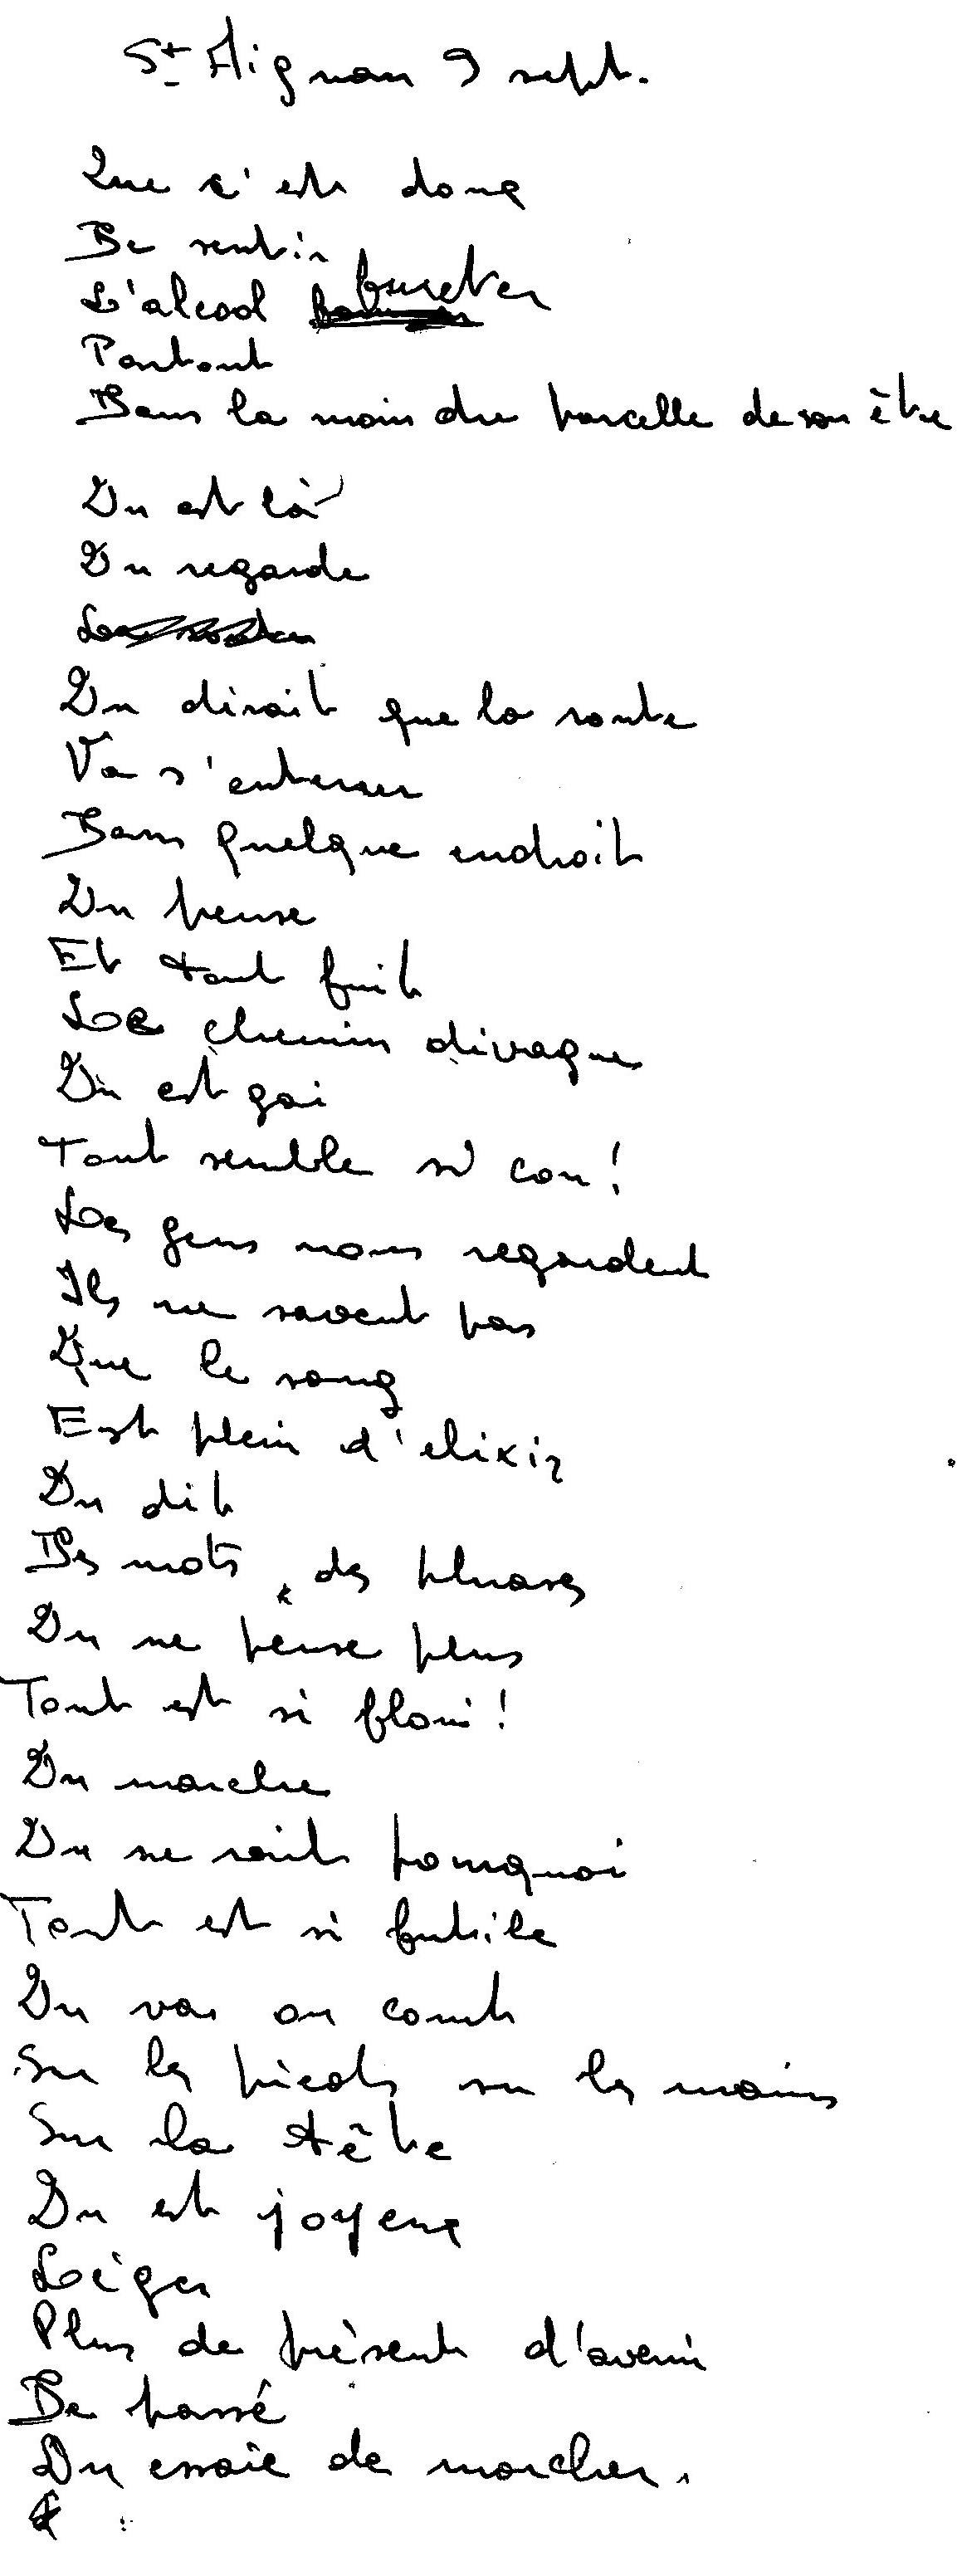 St Aignan 9 sept.
Que c'est doux
De sentir
L'alcool fureter
Partout
Dans la moindre parcelle de son être
On est là
On regarde
On dirait que la route
Va s'enterrer
Dans quelque endroit
On pense
Et tout fuit
Le chemin divague
On est gai
Tout semble si con!
Les gens nous regardent
Ils ne savent pas
Que le sang
Est plein d'elixir
On dit
Des mots, des phrases
On ne pense plus
Tout est si flou!
On marche
On ne sait pourquoi
Tout est si futile
On va on court
Sur les pieds sur les mains
Sur la tête
On est joyeux
Léger
Plus de présent d'avenir
De passé
On essaie de marcher.